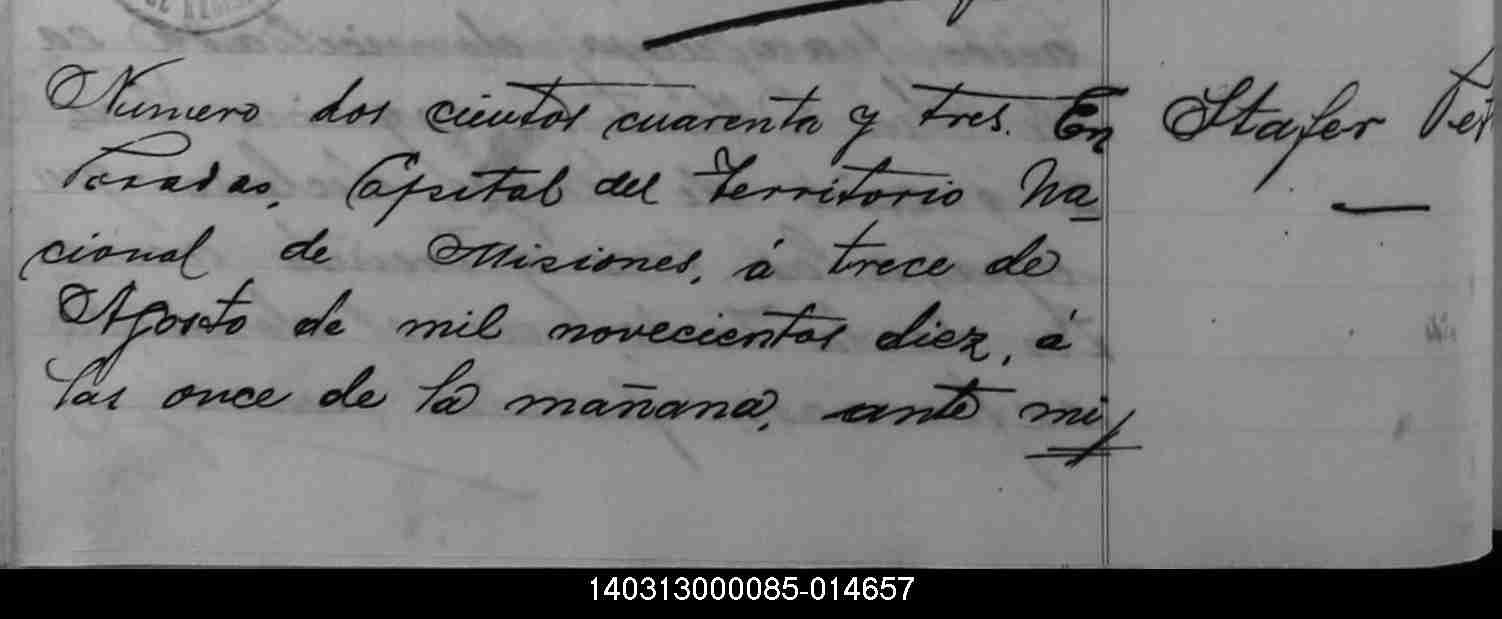 Numero dos cientos cuarenta y tres. En
Posadas, Capital del Territorio Na
cional de Misiones, á trece de
Agosto de mil novecientos diez, á
las once de la mañana, ante mi
Stafer
140313000085-014657